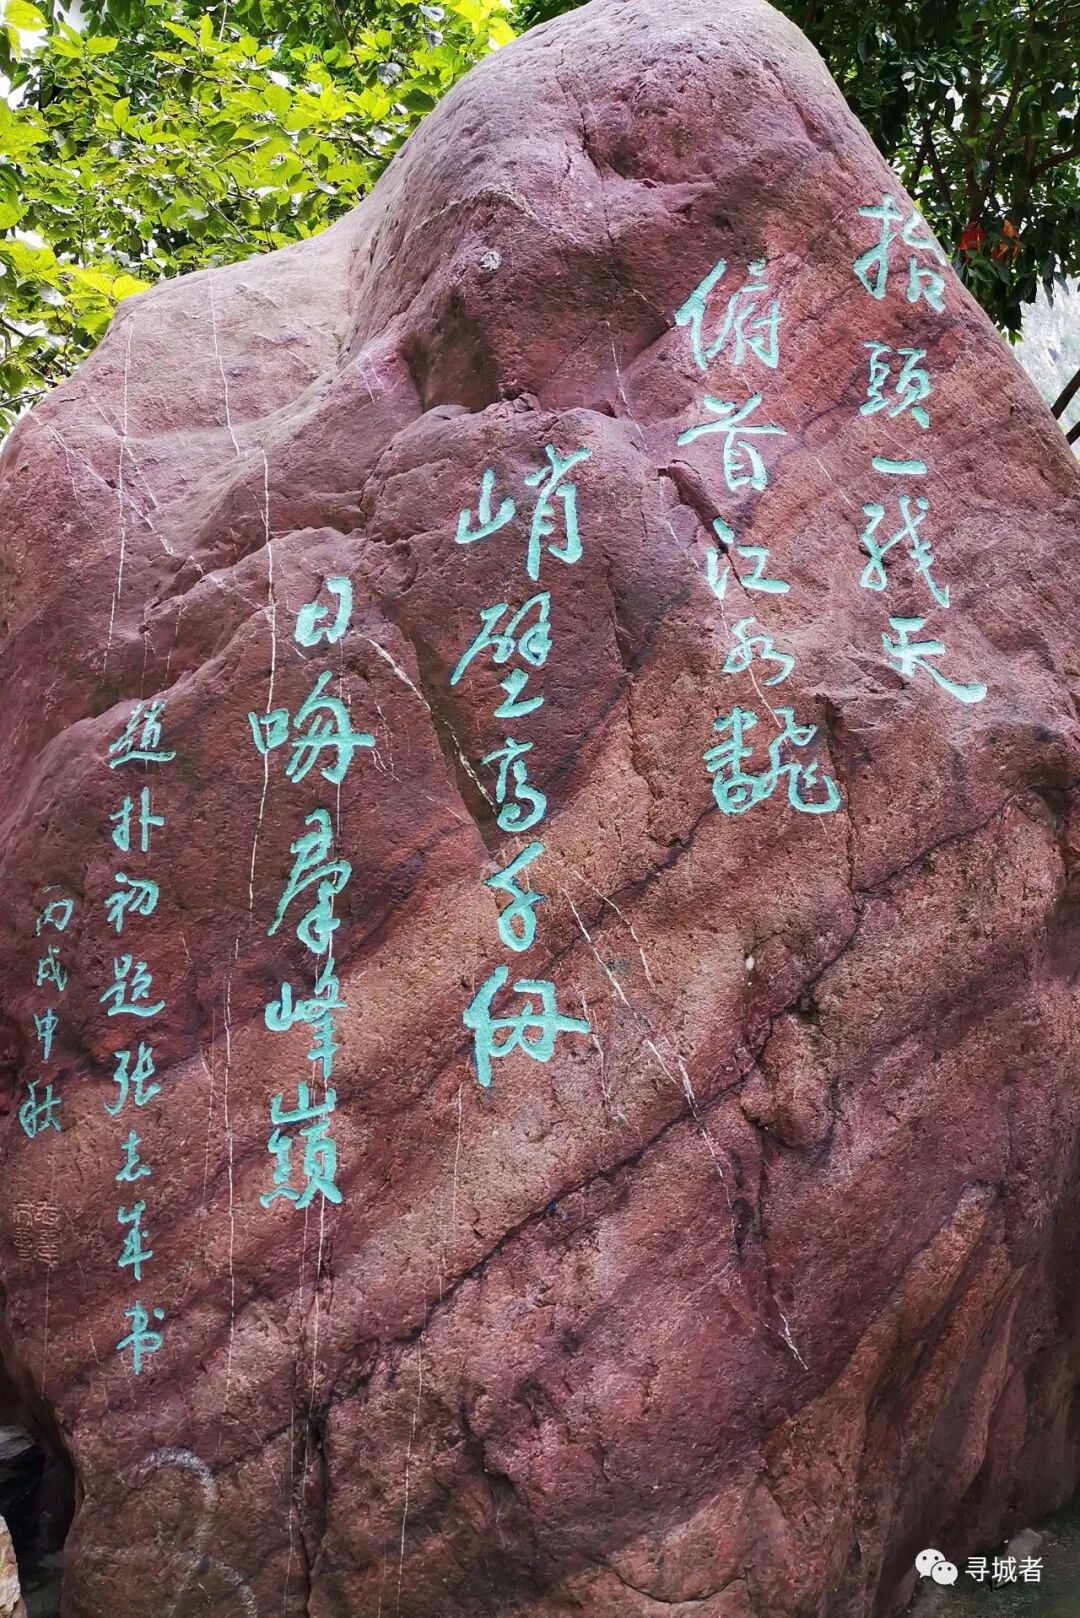 抬頭一线天
俯首江水飜
峭壁高千仞
日吻羣峰巔
趙朴初题张志年书
丙戌中秋
寻城者